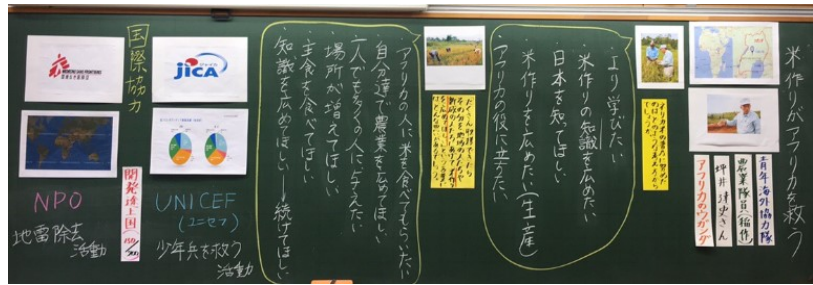 米作りがアフリカを救う
青年海外協力隊
農業隊員(稲作)
坪井達史さん
アフリカのウガンダ
・より学びたい
・米作りの知識を広めたい
・日本を知ってほしい
・米作りを広めたい(生産)
・アフリカの役に立ちたい
・アフリカの人に米を食べてもらいたい
・自分達で農業を広めてほしい
・一人でも多くの人に与えたい
・場所が増えてほしい
・主食を食べてほしい
・知識を広めてほしい 続けてほしい
国際協力
jICA
UNICEF
(ユニセフ)
少年兵を救う
活動
開発途上国
MEDECINS SANS FRONTIERES
国境なき医師団
NPO
地雷除去
活動